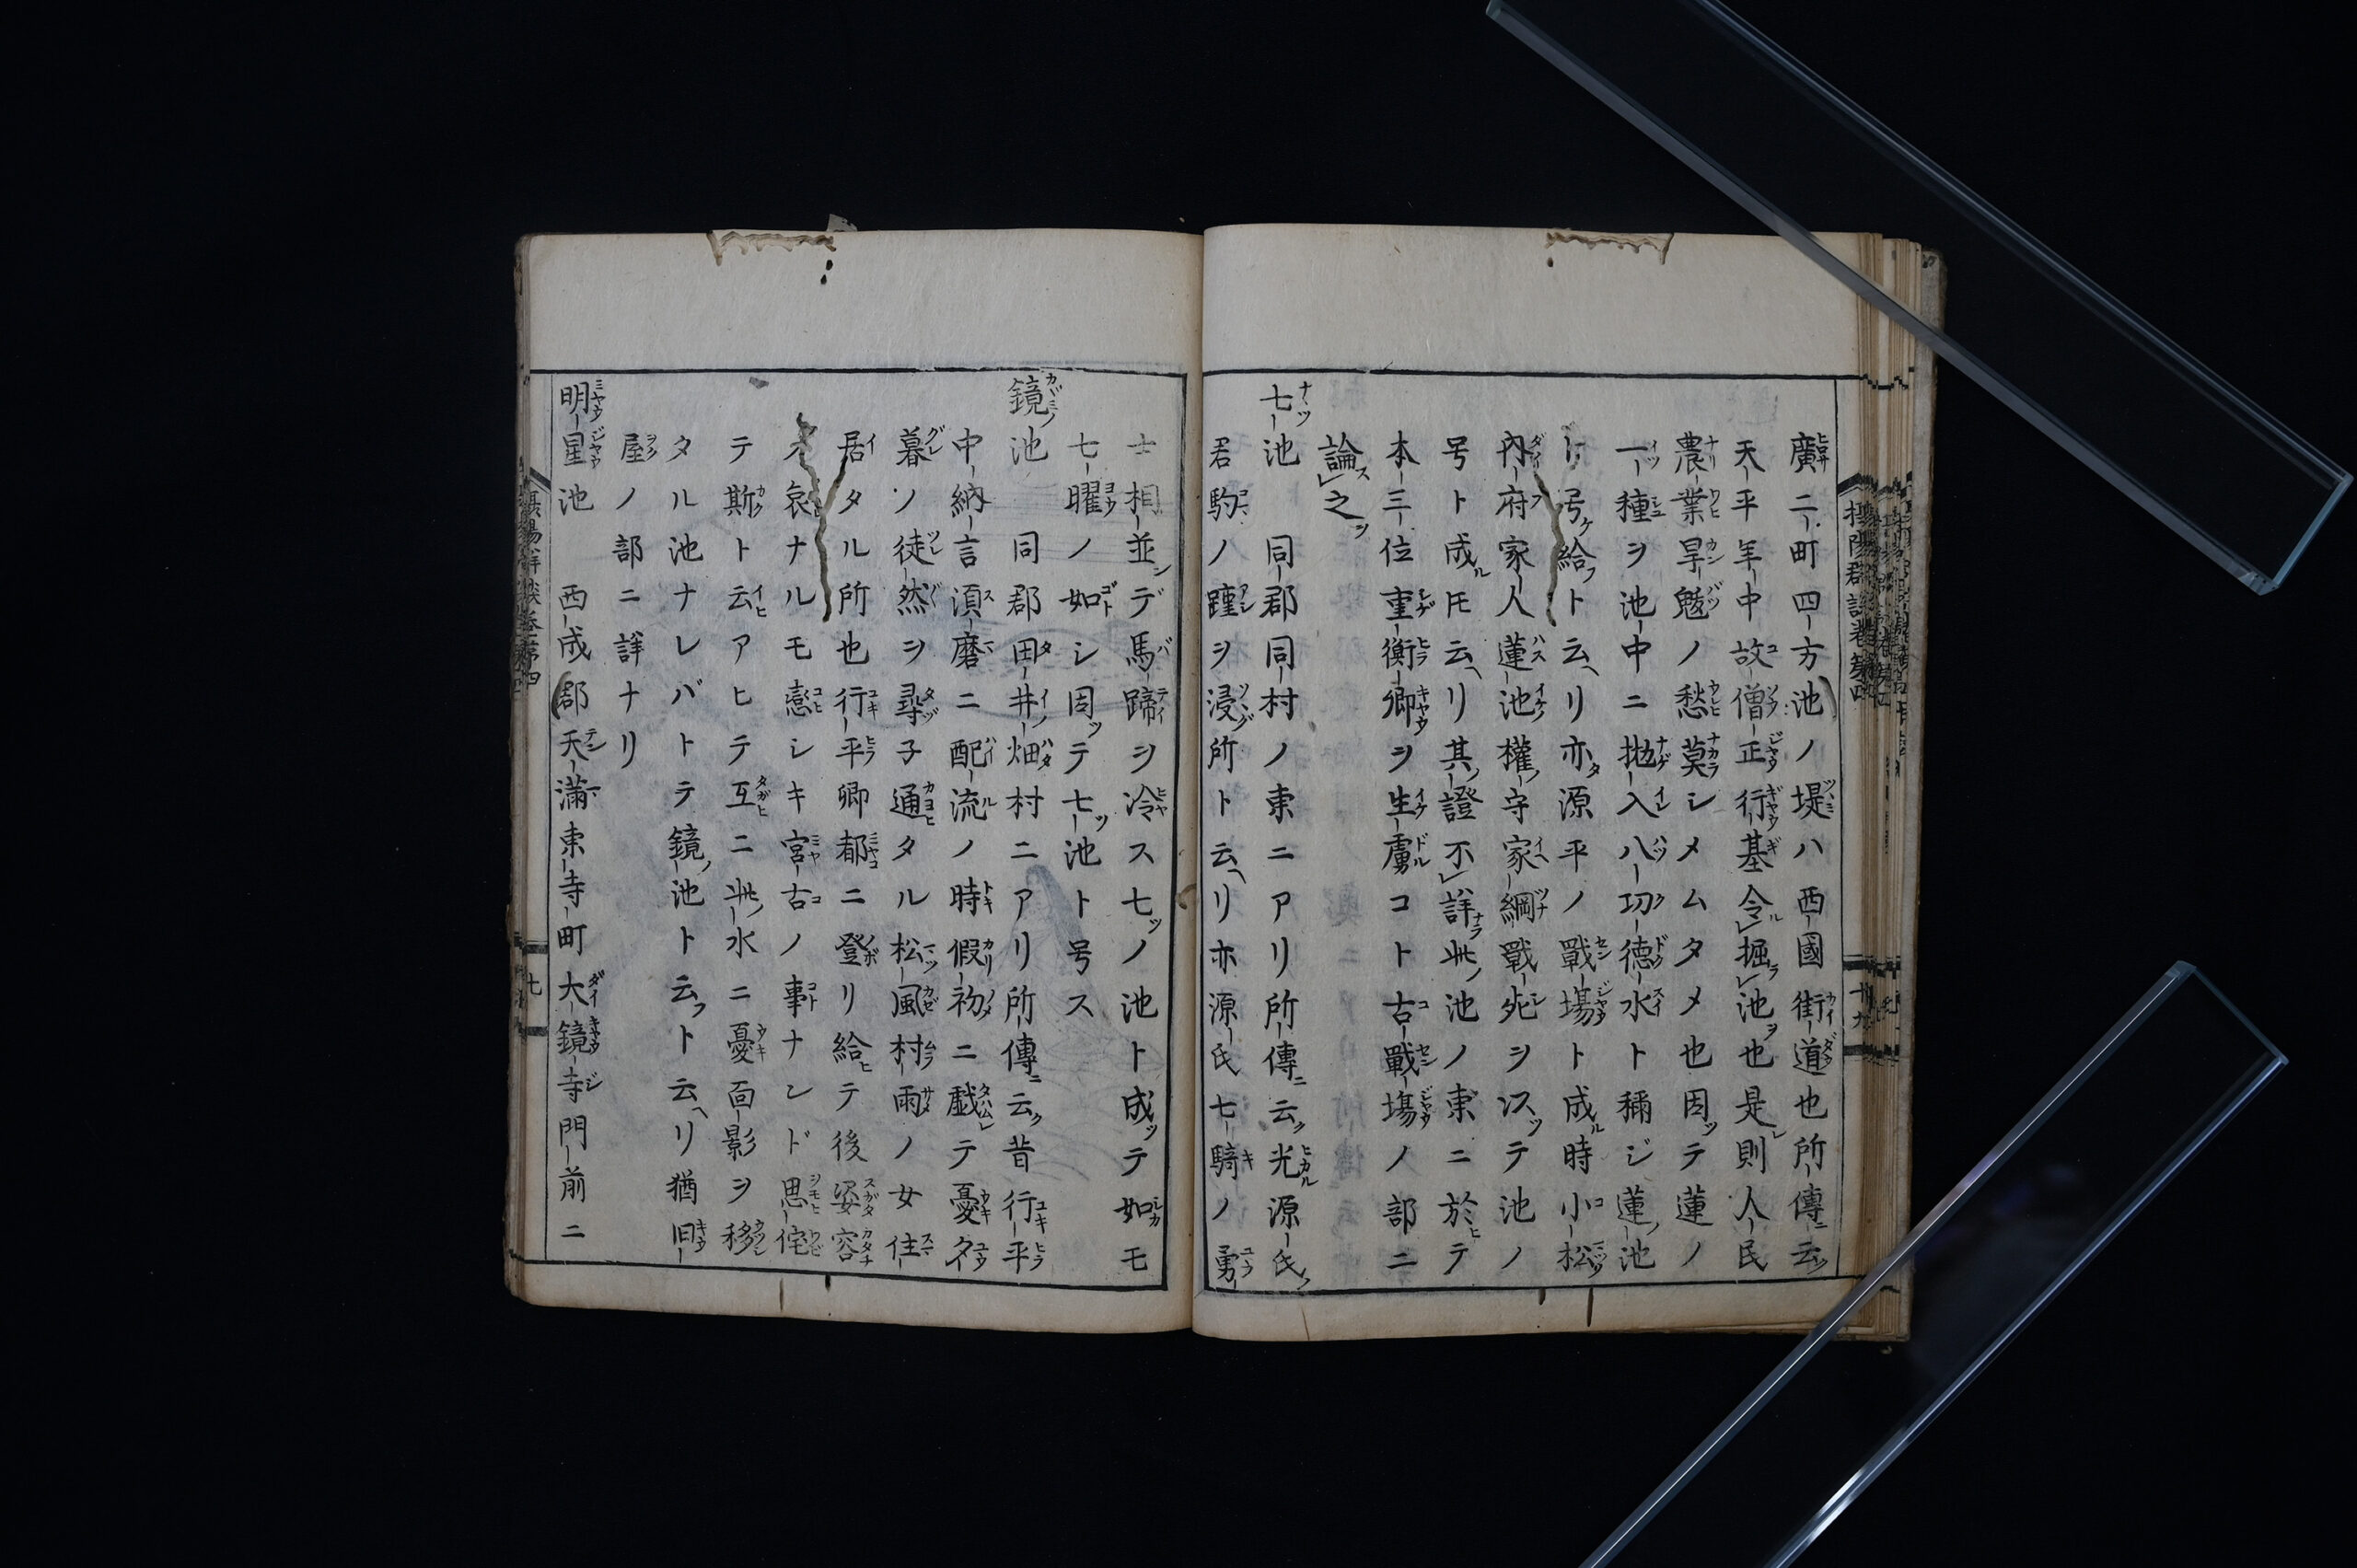 廣二町四方池ノ堤ハ西國街道也所傳云
天平年中故僧正行基令堀池也是則人民
農業旱魃ノ愁莫シメムタメ也因テ蓮ノ
一種ヲ池中ニ抛入八功徳水ト稱ジ蓮池
ト号給ト云リ亦源平ノ戰場ト成時小松
内府家人蓮池權守家綱戰死ヲ以テ池ノ
号ト成ル𪜈云リ其證不詳此池ノ東ニ於テ
本三位重衡卿ヲ生虜コト古戰塲ノ部ニ
論之
七池 同郡同村ノ東ニアリ所傳云光源氏
君駒ノ蹱ヲ浸所ト云リ亦源氏七騎ノ勇
士相並デ馬蹄ヲ冷ス七ノ池ト成テ如モ
七曜ノ如シ因テ七池ト号ス
鏡池 同郡田井畑村ニアリ所傳云昔行平
中納言須磨ニ配流ノ時假初ニ戯テ憂夕
暮ノ徒然ヲ尋子通タル松風村雨ノ女住
居タル所也行平卿都ニ登リ給テ後姿容
哀ナルモ恋シキ宮古ノ事ナンド思侘
テ斯ト云アヒテ互ニ此水ニ憂面影ヲ移
タル池ナレバトテ鏡池ト云フト云リ猶旧
屋ノ部ニ詳ナリ
明星池 西成郡天滿東寺町大鏡寺門前ニ
攝陽群談卷第四
十九